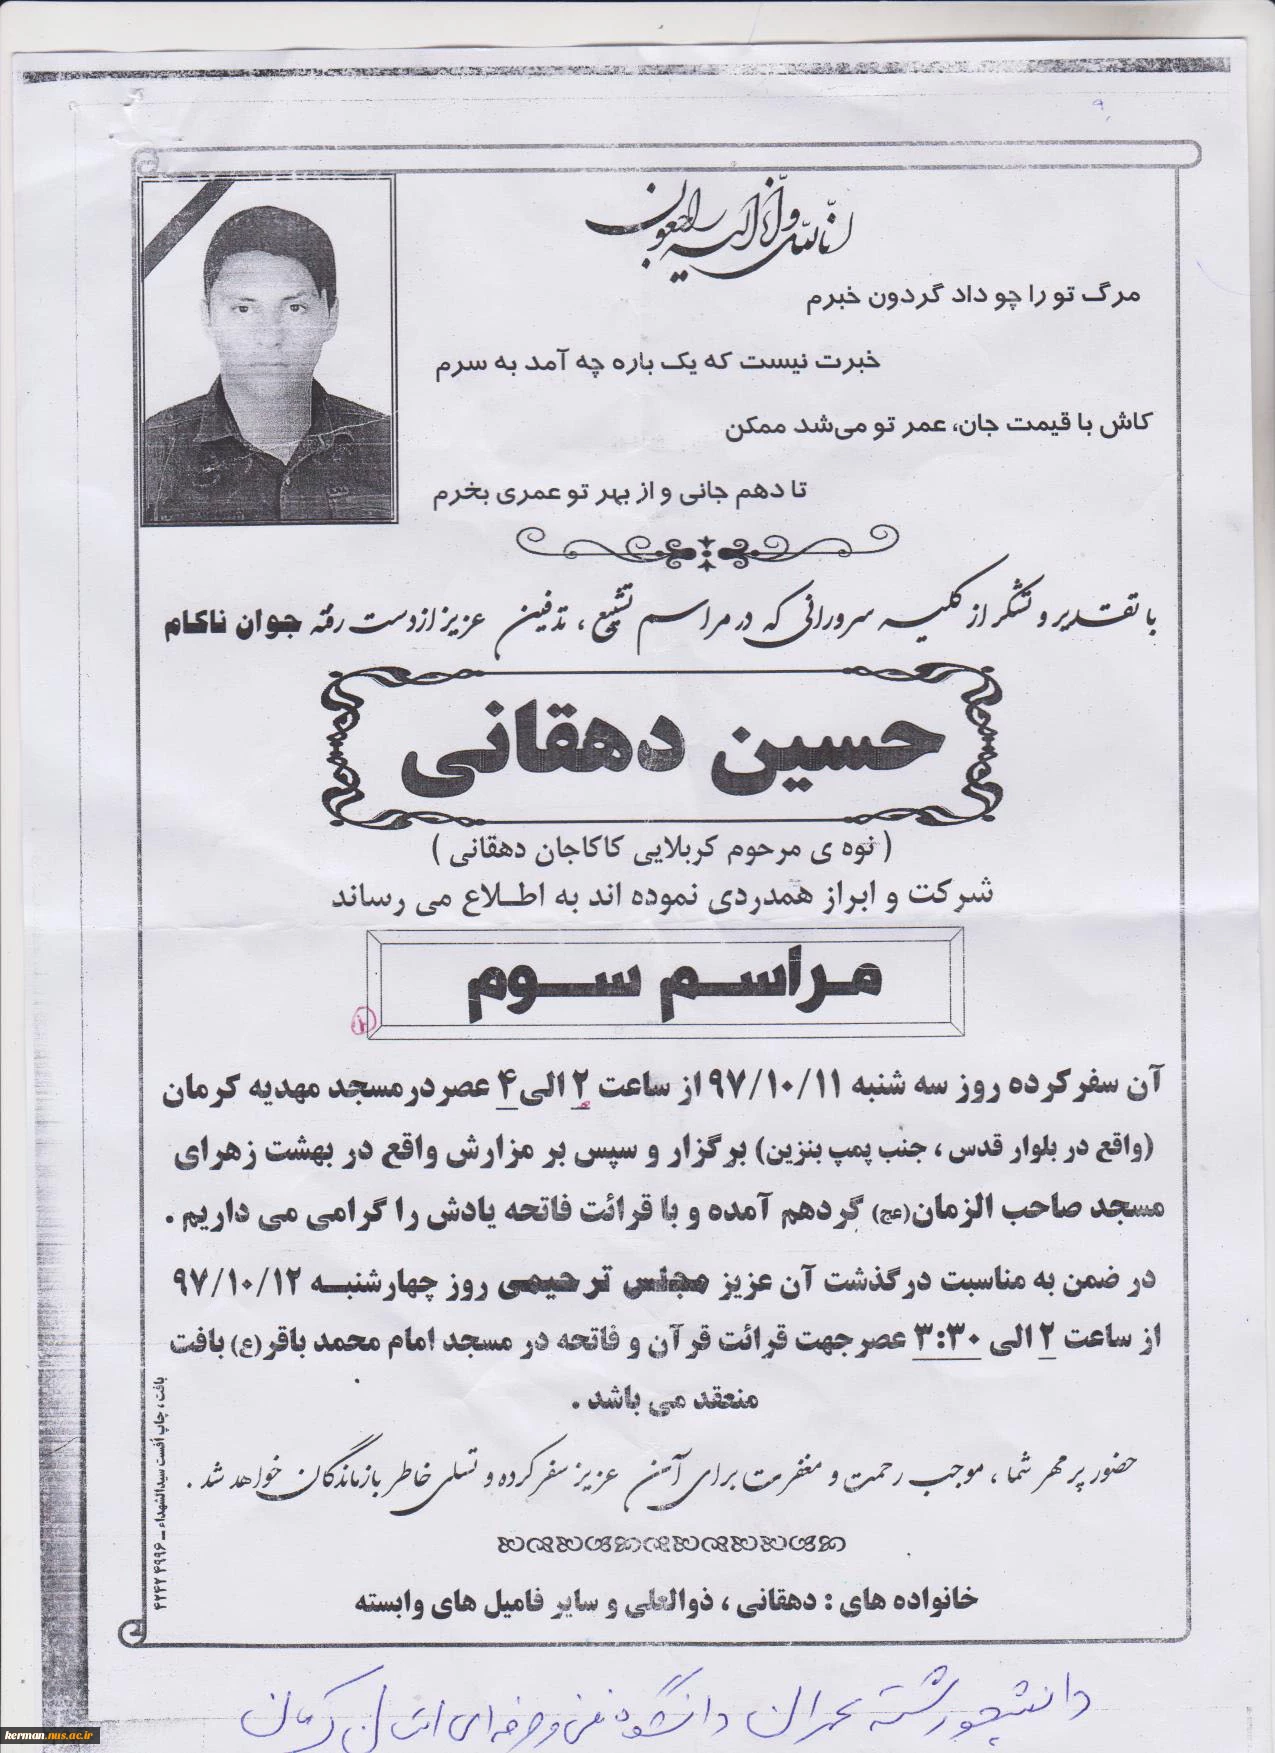 انا لله و انا الیه راجعون
مرگ تو را چو داد گردون خبرم
خبرت نیست که یک باره چه آمد به سرم
کاش با قیمت جان، عمر تو می‌شد ممکن
تا دهم جانی و از بهر تو عمری بخرم
با تقدیر و تشکر از کلیه سرورانی که در مراسم تشییع ، تدفین عزیز از دست رفته جوان ناکام
حسین دهقانی
( نوه ی مرحوم کربلایی کاکاجان دهقانی )
شرکت و ابراز همدردی نموده اند به اطلاع می رساند
مراسم سوم
آن سفر کرده روز سه شنبه ۹۷/۱۰/۱۱ از ساعت ۲ الی ۴ عصر در مسجد مهدیه کرمان
(واقع در بلوار قدس ، جنب پمپ بنزین) برگزار و سپس بر مزارش واقع در بهشت زهرای
مسجد صاحب الزمان(عج) گردهم آمده و با قرائت فاتحه یادش را گرامی می داریم .
در ضمن به مناسبت درگذشت آن عزیز مجلس ترحیمی روز چهارشنبه ۹۷/۱۰/۱۲
از ساعت ۲ الی ۳:۳۰ عصر جهت قرائت قرآن و فاتحه در مسجد امام محمد باقر(ع) بافت
منعقد می باشد .
حضور پر مهر شما ، موجب رحمت و مغفرت برای آن عزیز سفر کرده و تسلی خاطر بازماندگان خواهد شد .
خانواده های : دهقانی ، ذوالعلی و سایر فامیل های وابسته
بافت ، چاپ افست سیدالشهداء ـ ۴۲۴۲۴۹۹۶
دانشجو رشته عمران دانشگاه فنی و حرفه ای استان کرمان
kerman.nus.ac.ir